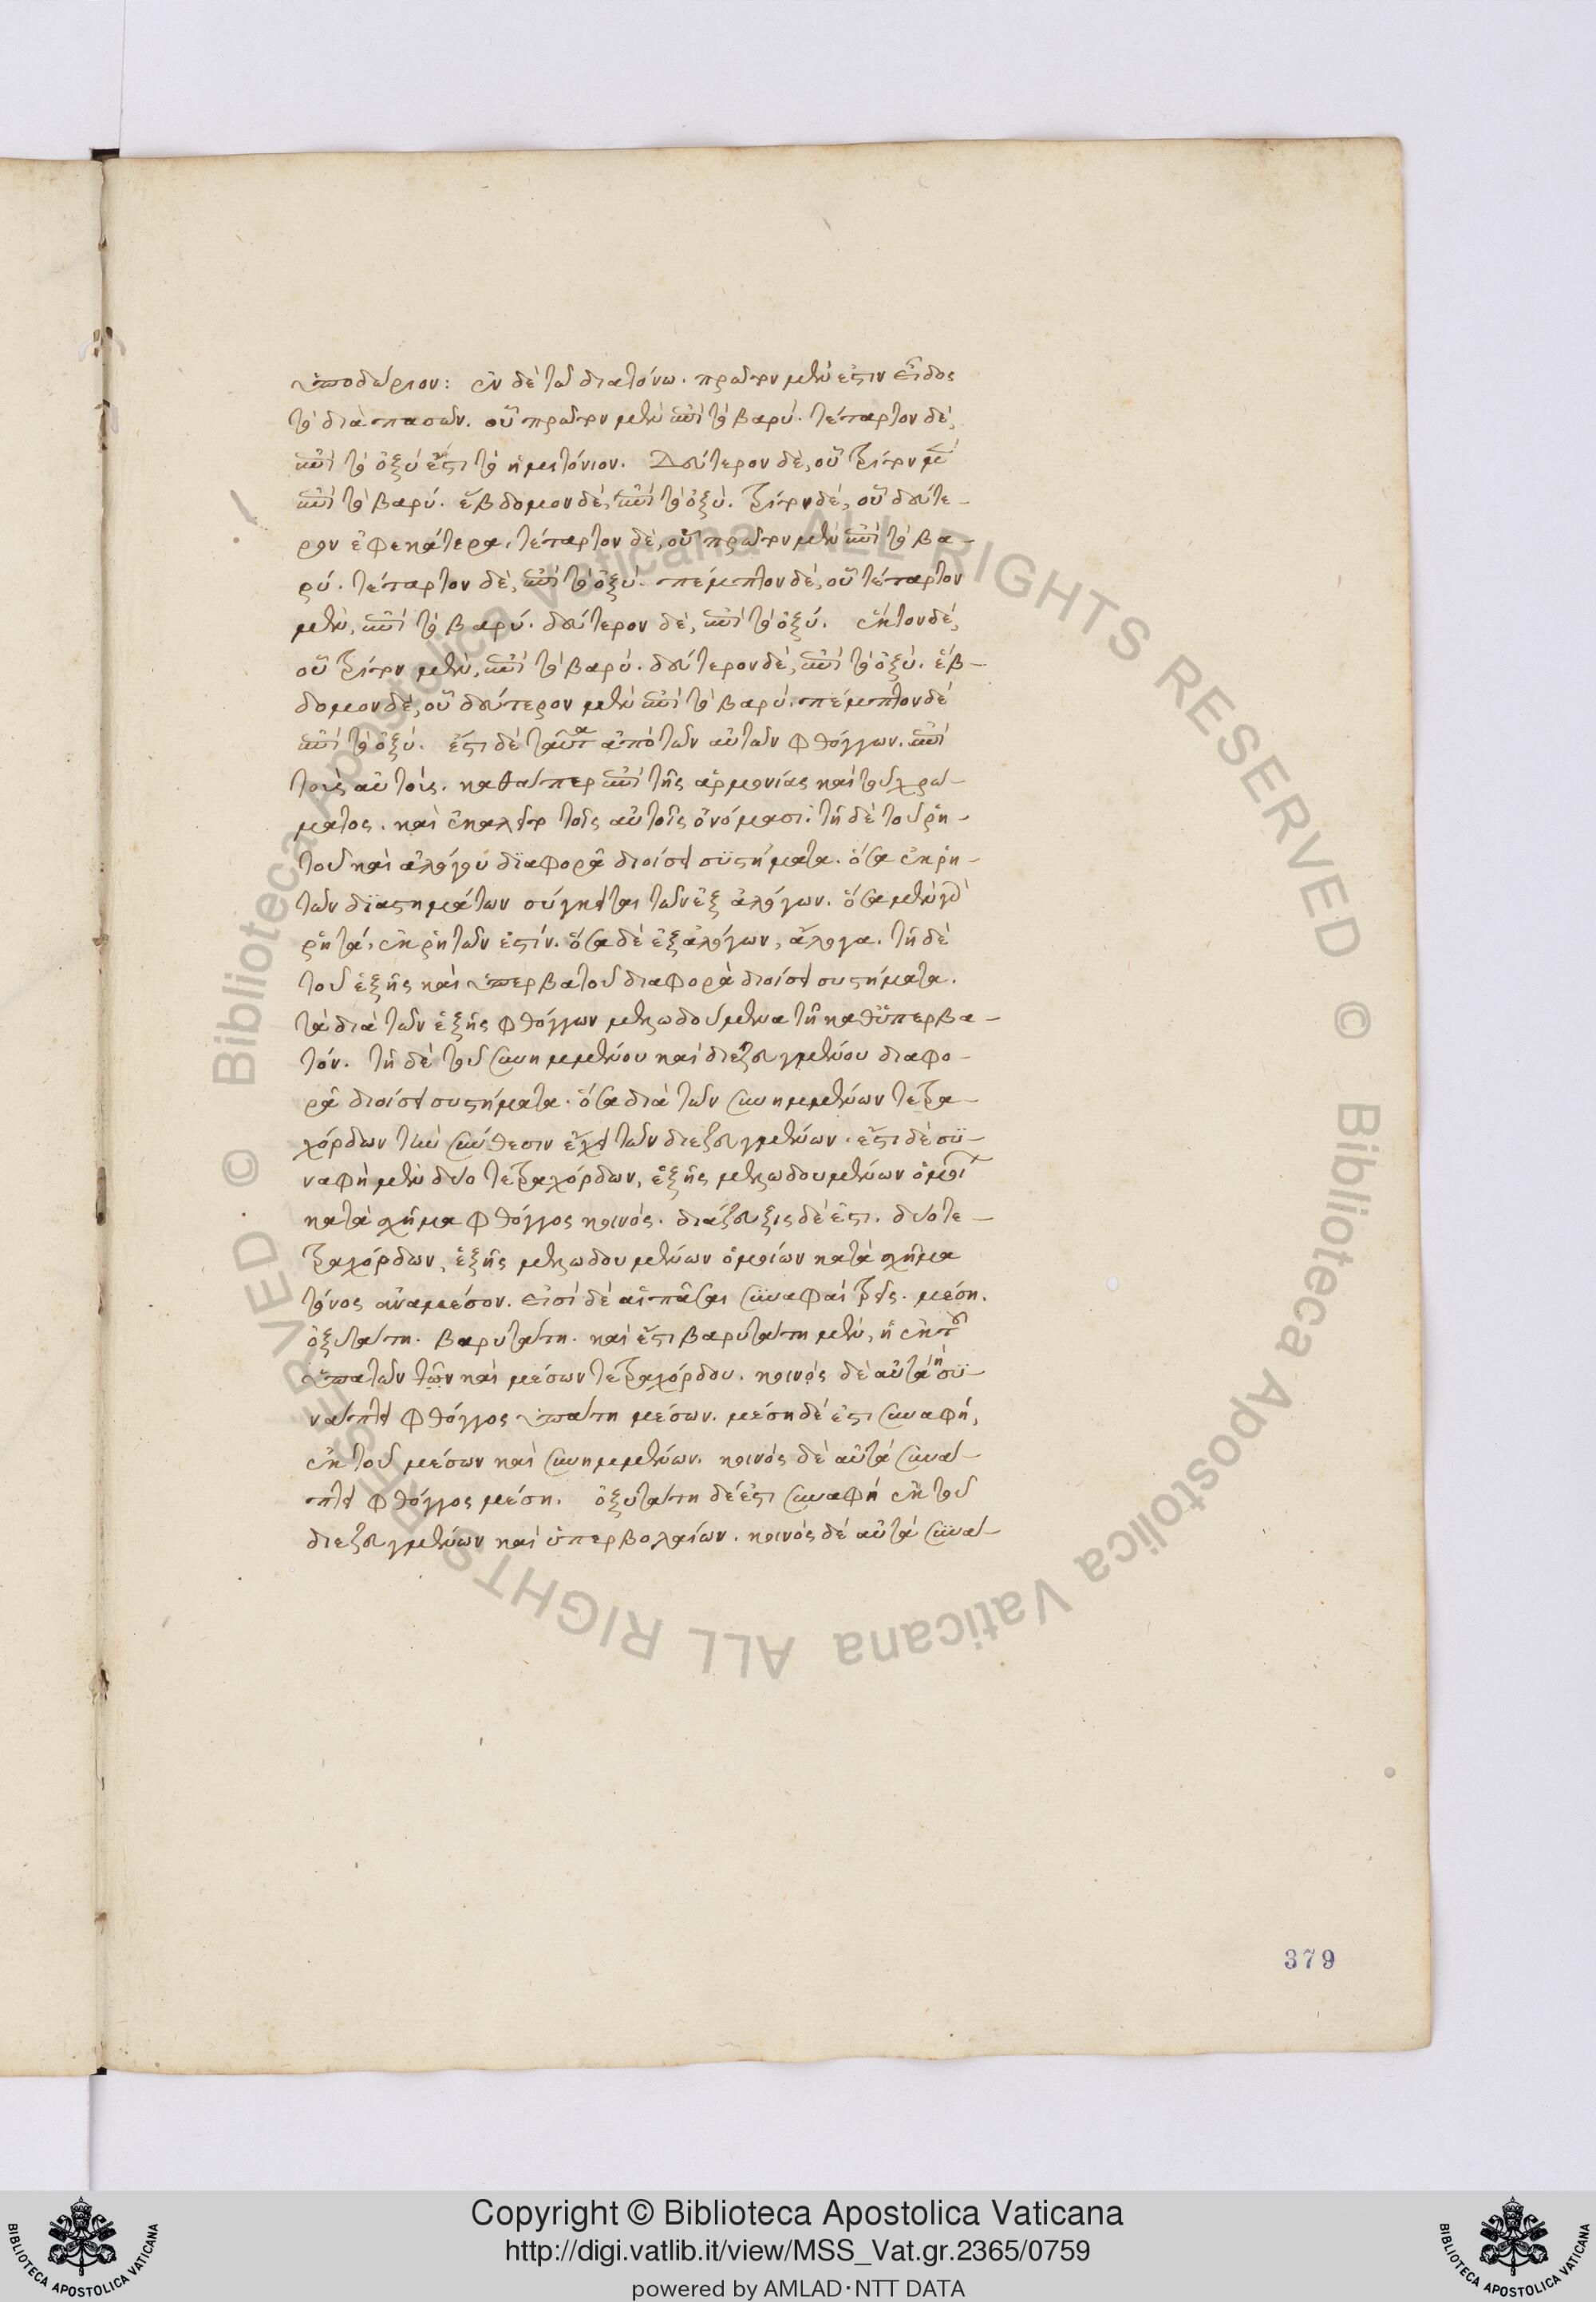 ὑποδώριον: ἐν δὲ τῶ διατόνω. πρῶτον μὲν ἐστὶν εἶδος
τὸ διὰ πασῶν. οὗ πρῶτον μὲν ἐπὶ τὸ βαρύ. τέταρτον δὲ,
ἐπὶ τὸ ὀξύ ἐστι τὸ ἡμιτόνιον. Δεύτερον δὲ, οὗ τρίτον μὲν
ἐπὶ τὸ βαρύ. ἕβδομον δὲ, ἐπὶ τὸ ὀξύ. τρίτον δὲ, οὗ δεύτε-
ρον ἐφεκάτερα. τέταρτον δὲ, οὗ πρῶτον μὲν ἐπὶ τὸ βα-
ρύ. τέταρτον δὲ, ἐπὶ τὸ ὀξύ. πέμπτον δὲ, οὗ τέταρτον
μὲν, ἐπὶ τὸ βαρύ. δεύτερον δὲ, ἐπὶ τὸ ὀξύ. ἕκτον δὲ,
οὗ τρίτον μὲν, ἐπὶ τὸ βαρύ. δεύτερον δὲ, ἐπὶ τὸ ὀξύ. ἕβ-
δομον δὲ, οὗ δεύτερον μὲν ἐπὶ τὸ βαρύ. πέμπτον δὲ
ἐπὶ τὸ ὀξύ. ἔστι δὲ ταῦτα ἀπὸ τῶν αὐτῶν φθόγγων. ἐπὶ
τοὺς αὐτούς. καθάπερ ἐπὶ τῆς ἁρμονίας καὶ τοῦ χρώ-
ματος. καὶ ἐκαλεῖτο τοῖς αὐτοῖς ὀνόμασι. τῆ δὲ τοῦ ῥη-
τοῦ καὶ ἀλόγου διαφορᾶ διοίσει συστήματα. ὅσα ἐκ ῥη-
τῶν διαστημάτων σύγκειται τῶν ἐξ ἀλόγων. ὅσα μὲν γὰρ
ῥητά, ἐκ ῥητῶν ἐστίν. ὅσα δὲ ἐξ ἀλόγων, ἄλογα. τῆ δὲ
τοῦ ἑξῆς καὶ ὑπερβατοῦ διαφορὰ διοίσει συστήματα.
τὰ διὰ τῶν ἑξῆς φθόγγων μελωδούμενα τῆ καθ' ὑπερβα-
τόν. τῆ δὲ τοῦ συνημμένου καὶ διεζευγμένου διαφο-
ρᾶ διοίσει συστήματα. ὅσα διὰ τῶν συνημμένων τετρα-
χόρδων τὴν σύνθεσιν ἔχει τῶν διεζευγμένων. ἔστι δὲ συ-
ναφὴ μὲν δύο τετραχόρδων, ἑξῆς μελωδουμένων ὁμοί
κατὰ σχῆμα φθόγγος κοινός. διάζευξις δέ ἐστι. δύο τε-
τραχόρδων, ἑξῆς μελωδουμένων ὁμοίων κατὰ σχῆμα
τόνος ἀναμέσον. εἰσὶ δὲ αἱ πᾶσαι συναφαὶ τρεῖς. μέση.
ὀξυτάτη. βαρυτάτη. καὶ ἔστι βαρυτάτη μὲν, ἡ ἐκ τοῦ
ὑπατῶν τῶν καὶ μέσων τετραχόρδου. κοινὸς δὲ αὐτὰ ἡ συ-
νάπτει φθόγγος ὑπάτη μέσων. μέση δέ ἐστι συναφή,
ἐκ τοῦ μέσων καὶ συνημμένων. κοινὸς δὲ αὐτὰ συνά-
πτει φθόγγος μέση. ὀξυτάτη δέ ἐστι συναφὴ ἐκ τοῦ
διεζευγμένων καὶ ὑπερβολαίων. κοινὸς δὲ αὐτὰ συνά-
379
Copyright © Biblioteca Apostolica Vaticana
http://digi.vatlib.it/view/MSS_Vat.gr.2365/0759
powered by AMLAD·NTT DATA